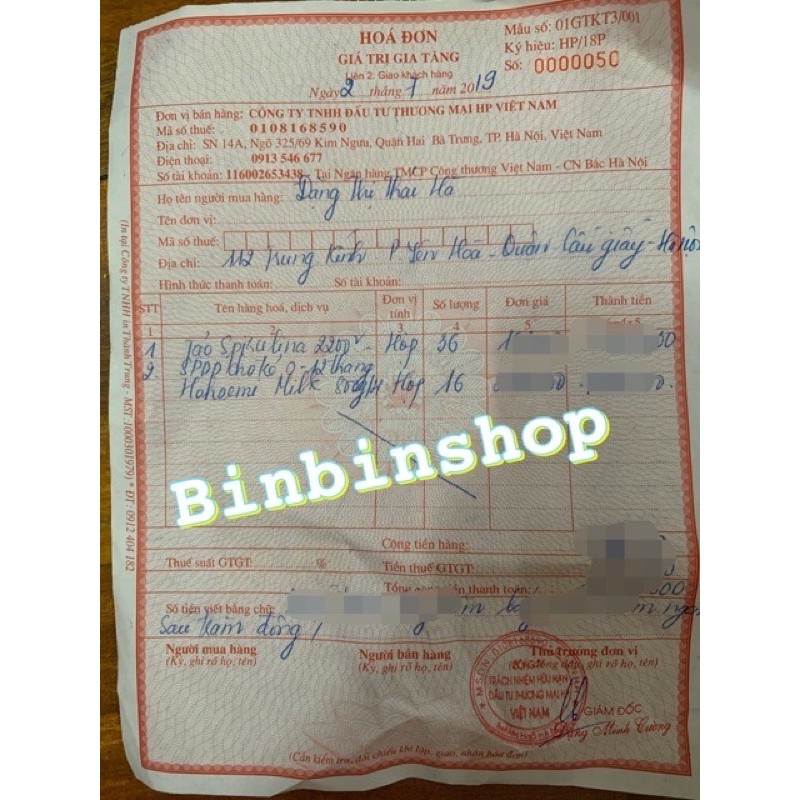 HOÁ ĐƠN
GIÁ TRỊ GIA TĂNG
Liên 2: Giao khách hàng
Ngày 2 tháng 7 năm 2019
Mẫu số: 01GTKT3/001
Ký hiệu: HP/18P
Số: 0000050
Đơn vị bán hàng: CÔNG TY TNHH ĐẦU TƯ THƯƠNG MẠI HP VIỆT NAM
Mã số thuế: 0108168590
Địa chỉ: SN 14A, Ngõ 325/69 Kim Ngưu, Quận Hai Bà Trưng, TP. Hà Nội, Việt Nam
Điện thoại: 0913 546 677
Số tài khoản: 116002653438 - Tại Ngân hàng TMCP Công thương Việt Nam - CN Bắc Hà Nội
Họ tên người mua hàng: Đặng Thị Thái Hà
Tên đơn vị:
Mã số thuế:
Địa chỉ: 112 Trung Kính P Yên Hoà - Quận Cầu giấy - Hà nội
Hình thức thanh toán: Số tài khoản:
STT Tên hàng hoá, dịch vụ Đơn vị tính Số lượng Đơn giá Thành tiền
1 2 3 4 5
1 Tảo Spirulina 2200v - Hộp 36
2. SPDD cho bé 0-12 tháng
Hohoemi Milk Hộp 16
Binbinshop
Cộng tiền hàng:
Thuế suất GTGT: % Tiền thuế GTGT:
thanh toán:
Số tiền viết bằng chữ:
Sáu trăm đồng
Người mua hàng
(Ký, ghi rõ họ, tên)
Người bán hàng
(Ký, ghi rõ họ, tên)
Thủ trưởng đơn vị
dấu, ghi rõ họ, tên)
TRÁCH NHIỆM HỮU HẠN
ĐẦU TƯ THƯƠNG MẠI
VIỆT NAM
GIÁM ĐỐC
Đặng Minh Cường
(Cần kiểm tra, đối chiếu khi lập, giao, nhận hóa đơn)
(In tại Công ty TNHH in Thành Trung - MST: 1000301979) * ĐT: 0912 404 182